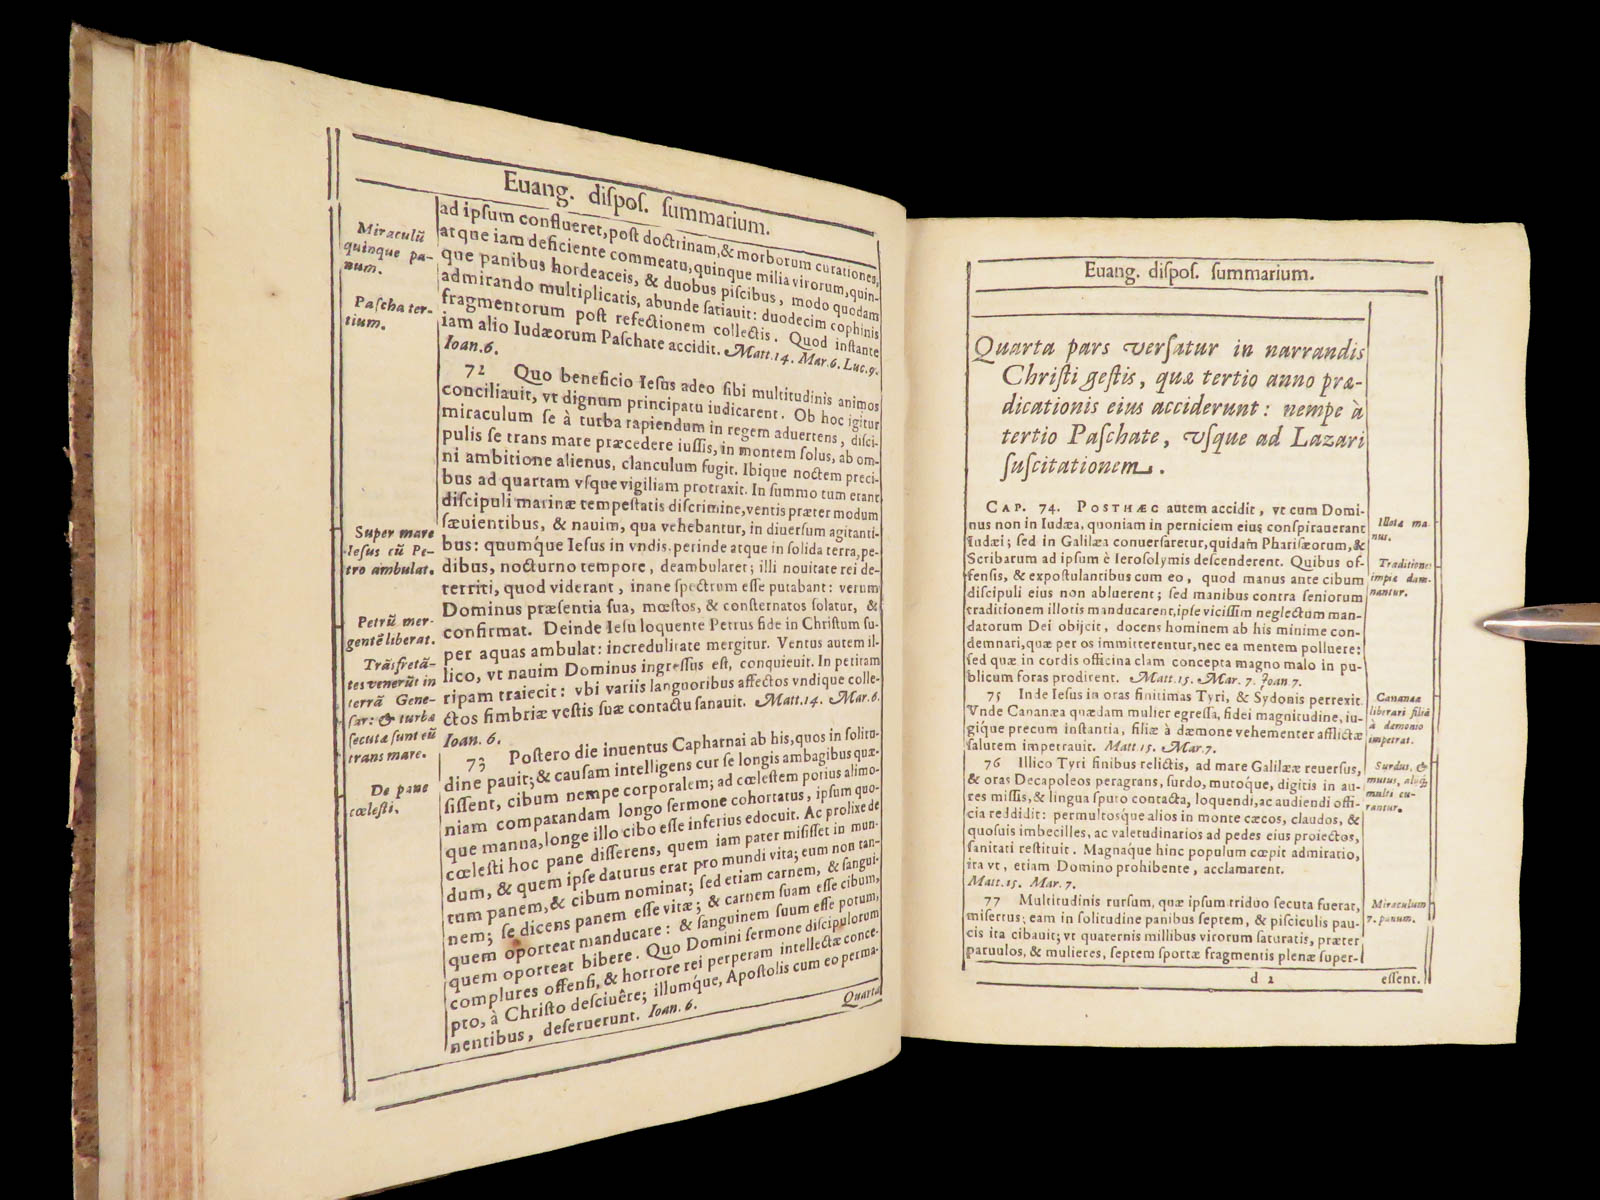 Euang. diſpoſ. ſummarium.
Miraculũ
quinque pa-
num.
Paſcha ter-
tium.
ad ipſum conflueret, poſt doctrinam, & morborum curationes,
atque iam deficiente commeatu, quinque milia virorum, quin-
que panibus hordeaceis, & duobus piſcibus, modo quodam
admirando multiplicatis, abunde ſatiauit: duodecim cophinis
fragmentorum poſt refectionem collectis. Quod inſtante
iam alio Iudæorum Paſchate accidit. Matt. 14. Mar. 6. Luc. 9.
Ioan. 6.
72 Quo beneficio Ieſus adeo ſibi multitudinis animos
conciliauit, vt dignum principatu iudicarent. Ob hoc igitur
miraculum ſe à turba rapiendum in regem aduertens, diſci-
pulis ſe trans mare præcedere iuſſis, in montem ſolus, ab om-
ni ambitione alienus, clanculum fugit. Ibique noctem preci-
bus ad quartam vſque vigiliam protraxit. In ſummo tum erant
diſcipuli marinæ tempeſtatis diſcrimine, ventis præter modum
ſæuientibus, & nauim, qua vehebantur, in diuerſum agitanti-
bus: quumq́ue Ieſus in vndis, perinde atque in ſolida terra, pe-
dibus, nocturno tempore, deambularet; illi nouitate rei de-
territi, quod viderant, inane ſpectrum eſſe putabant: verum
Dominus præſentia ſua, mœſtos, & conſternatos ſolatur, &
confirmat. Deinde Ieſu loquente Petrus fide in Chriſtum ſu-
per aquas ambulat: incredulitate mergitur. Ventus autem il-
lico, vt nauim Dominus ingreſſus eſt, conquieuit. In petitam
ripam traiecit: vbi variis languoribus affectos vndique colle-
ctos fimbriæ veſtis ſuæ contactu ſanauit. Matt. 14. Mar. 6.
Ioan. 6.
Super mare
Ieſus cũ Pe-
tro ambulat.
Petrũ mer-
gentẽ liberat.
Trãsfretã-
tes venerũt in
terrã Gene-
ſar: & turbæ
ſecutæ ſunt eũ
trans mare.
De pane
cœleſti.
73 Poſtero die inuentus Capharnai ab his, quos in ſolitu-
dine pauit; & cauſam intelligens cur ſe longis ambagibus quæ-
ſiſſent, cibum nempe corporalem; ad cœleſtem potius alimo-
niam comparandam longo ſermone cohortatus, ipſum quo-
que manna, longe illo cibo eſſe inferius edocuit. Ac prolixe de
cœleſti hoc pane diſſerens, quem iam pater miſiſſet in mun-
dum, & quem ipſe daturus erat pro mundi vita; eum non tan-
tum panem, & cibum nominat; ſed etiam carnem, & ſangui-
nem; ſe dicens panem eſſe vitæ; & carnem ſuam eſſe cibum,
quem oporteat manducare: & ſanguinem ſuum eſſe potum,
quem oporteat bibere. Quo Domini ſermone diſcipulorum
complures offenſi, & horrore rei perperam intellectæ conce-
pto, à Chriſto deſciuêre; illumq́ue, Apoſtolis cum eo perma-
nentibus, deſeruerunt. Ioan. 6.
Quarta
Euang. diſpoſ. ſummarium.
Quarta pars verſatur in narrandis
Chriſti geſtis, quæ tertio anno præ-
dicationis eius acciderunt: nempe à
tertio Paſchate, vſque ad Lazari
ſuſcitationem.
CAP. 74. POSTHÆC autem accidit, vt cum Domi-
nus non in Iudæa, quoniam in perniciem eius conſpirauerant
Iudæi; ſed in Galilæa conuerſaretur, quidam Phariſæorum, &
Scribarum ad ipſum è Ieroſolymis deſcenderent. Quibus of-
fenſis, & expoſtulantibus cum eo, quod manus ante cibum
diſcipuli eius non abluerent; ſed manibus contra ſeniorum
traditionem illotis manducarent, ipſe viciſſim neglectum man-
datorum Dei obijcit, docens hominem ab his minime con-
demnari, quæ per os immitterentur, nec ea mentem polluere:
ſed quæ in cordis officina clam concepta magno malo in pu-
blicum foras prodirent. Matt. 15. Mar. 7. Ioan 7.
Illotæ ma-
nus.
Traditiones
impiæ dam-
nantur.
75 Inde Ieſus in oras finitimas Tyri, & Sydonis perrexit.
Vnde Cananæa quædam mulier egreſſa, fidei magnitudine, iu-
giq́ue precum inſtantia, filiæ à dæmone vehementer afflictæ
ſalutem impetrauit. Matt. 15. Mar. 7.
Cananæa
liberari filiã
à dæmonio
impetrat.
76 Illico Tyri finibus relictis, ad mare Galilææ reuerſus,
& oras Decapoleos peragrans, ſurdo, mutoq́ue, digitis in au-
res miſſis, & lingua ſputo contacta, loquendi, ac audiendi offi-
cia reddidit: permultosque alios in monte cæcos, claudos, &
quoſuis imbecilles, ac valetudinarios ad pedes eius proiectos,
ſanitati reſtituit. Magnaq́ue hinc populum cœpit admiratio,
ita vt, etiam Domino prohibente, acclamarent.
Matt. 15. Mar. 7.
Surdus, &
mutus, aliiq́;
multi cu-
rantur.
77 Multitudinis rurſum, quæ ipſum triduo ſecuta fuerat,
miſertus; eam in ſolitudine panibus ſeptem, & piſciculis pau-
cis ita cibauit; vt quaternis millibus virorum ſaturatis, præter
paruulos, & mulieres, ſeptem ſportæ fragmentis plenæ ſuper-
Miraculum
7. panum.
d 2
eſſent.